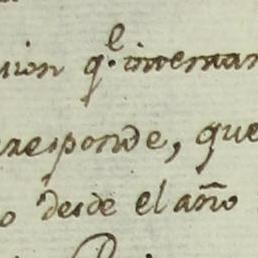 sion q.e intentan
rresponde, que
o desde el año